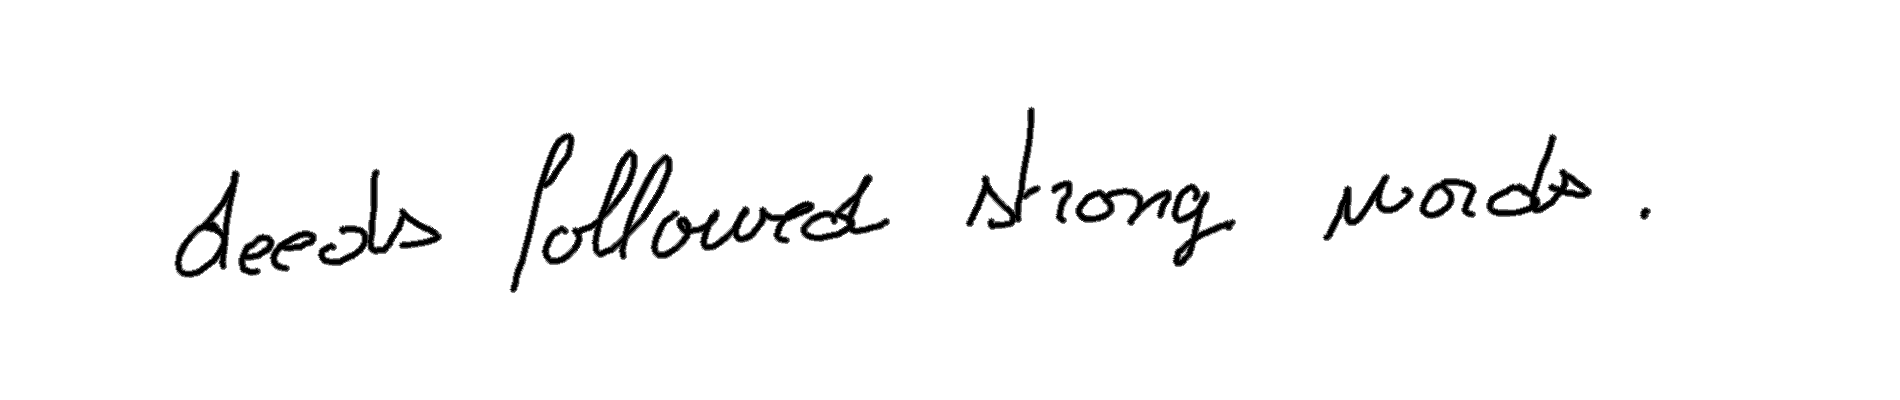 deeds followed strong words .